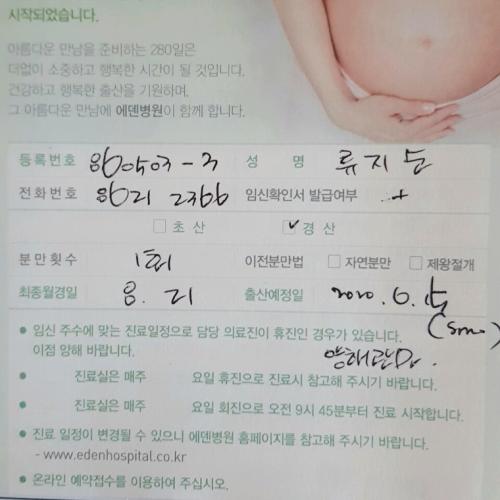 시작되었습니다.
아름다운 만남을 준비하는 280일은
더없이 소중하고 행복한 시간이 될 것입니다.
건강하고 행복한 출산을 기원하며,
그 아름다운 만남에 에덴병원이 함께 합니다.
등록번호 860503-3 성 명 류지
전화번호 8621 2366 임신확인서 발급여부 +
초 산 ✓ 경 산
분만횟수 1회 이전분만법 자연분만 제왕절개
최종월경일 8. 21 출산예정일 2020. 6. 15
임신 주수에 맞는 진료일정으로 담당 의료진이 휴진인 경우가 있습니다.
이점 양해 바랍니다.
진료실은 매주 요일 휴진으로 진료시 참고해 주시기 바랍니다.
진료실은 매주 요일 회진으로 오전 9시 45분부터 진료 시작합니다.
진료 일정이 변경될 수 있으니 에덴병원 홈페이지를 참고해 주시기 바랍니다.
- www.edenhospital.co.kr
온라인 예약접수를 이용하여 주십시오.